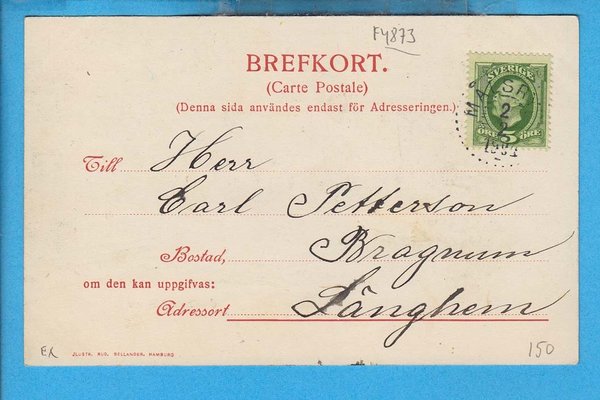 F4873
BREFKORT.
(Carte Postale)
(Denna sida användes endast för Adresseringen.)
SVERIGE
2
2
ÖRE 5 ÖRE
Till Herr
Carl Petterson
Bostad, Bragnum
om den kan uppgifvas:
Adressort Långhem
EX
JLUSTR. RUD. BELLANDER, HAMBURG
150